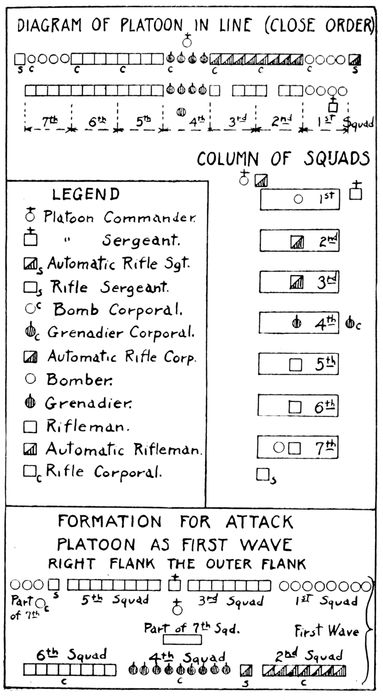 DIAGRAM OF PLATOON IN LINE (CLOSE ORDER)
S C C C C C C C S
7th 6th 5th 4th 3rd 2nd 1st Squad
COLUMN OF SQUADS
1st
2nd
3rd
4th C
5th
6th
7th
S
LEGEND
Platoon Commander.
" Sergeant.
S Automatic Rifle Sgt.
S Rifle Sergeant.
C Bomb Corporal.
C Grenadier Corporal.
Automatic Rifle Corp.
Bomber.
Grenadier.
Rifleman.
Automatic Rifleman.
C Rifle Corporal.
FORMATION FOR ATTACK
PLATOON AS FIRST WAVE
RIGHT FLANK THE OUTER FLANK
S
Part C 5th Squad 3rd Squad 1st Squad
of 7th
Part of 7th Sqd. First Wave
6th Squad 4th Squad 2nd Squad
C C S C